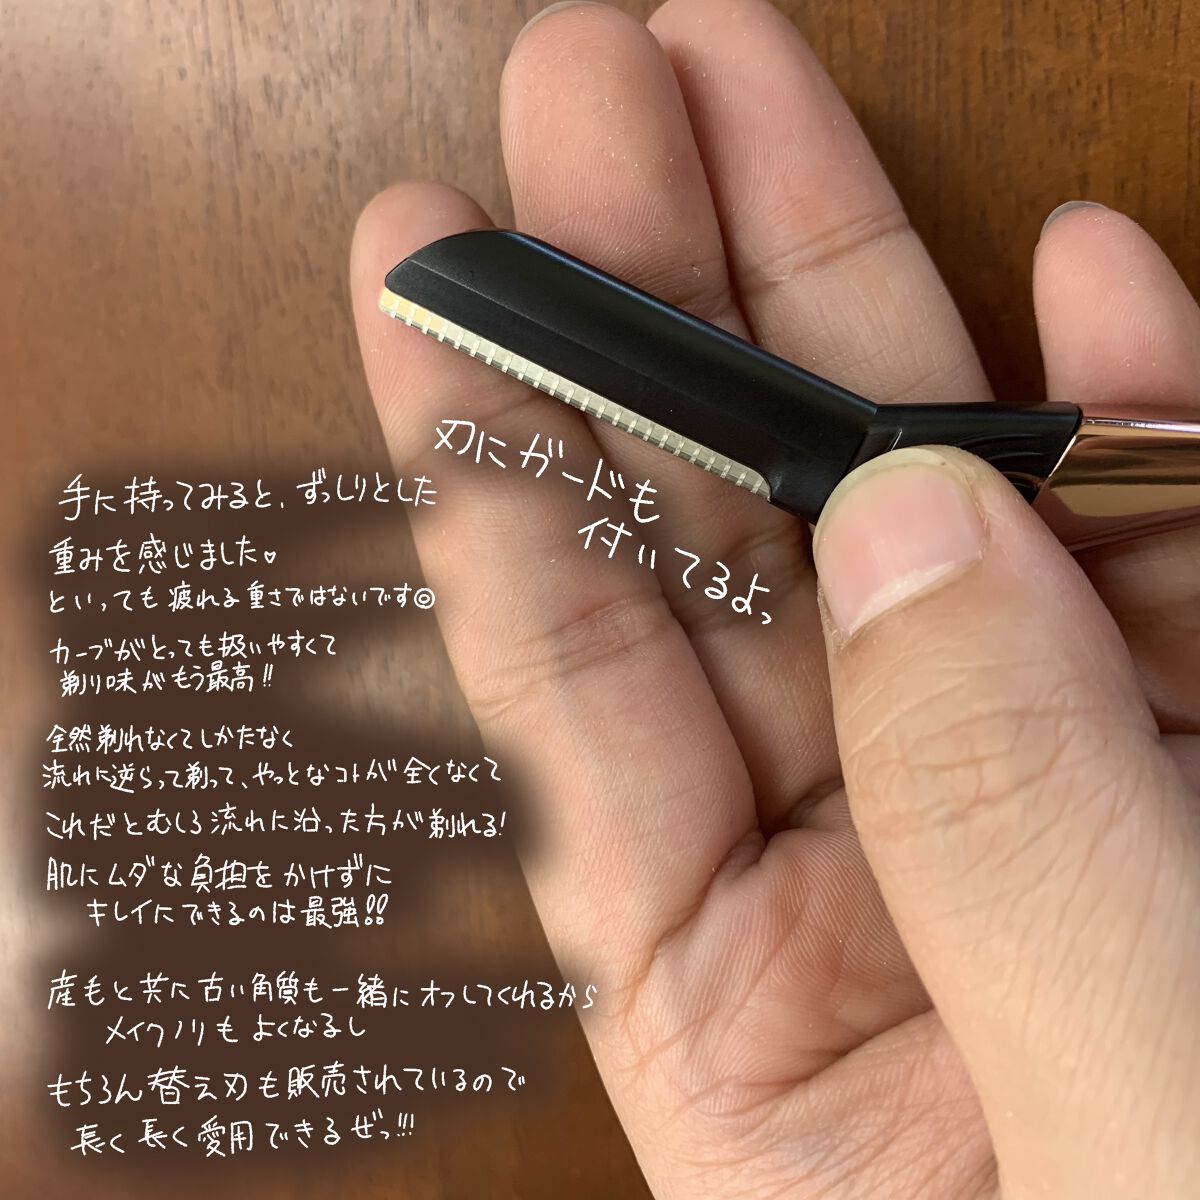 刃にガードも
付いてるよっ
手に持ってみると、ずっしりとした
重みを感じました♥
といっても疲れる重さではないです◎
カーブがとっても扱いやすくて
剃り味がもう最高!!
全然剃れなくてしかたなく
流れに逆らって剃って、やっとなコトが全くなくて
これだとむしろ流れに沿った方が剃れる!
肌にムダな負担をかけずに
キレイにできるのは最強!!
産毛と共に古い角質も一緒にオフしてくれるから
メイクノリもよくなるし
もちろん替え刃も販売されているので
長く長く愛用できるぜっ!!!